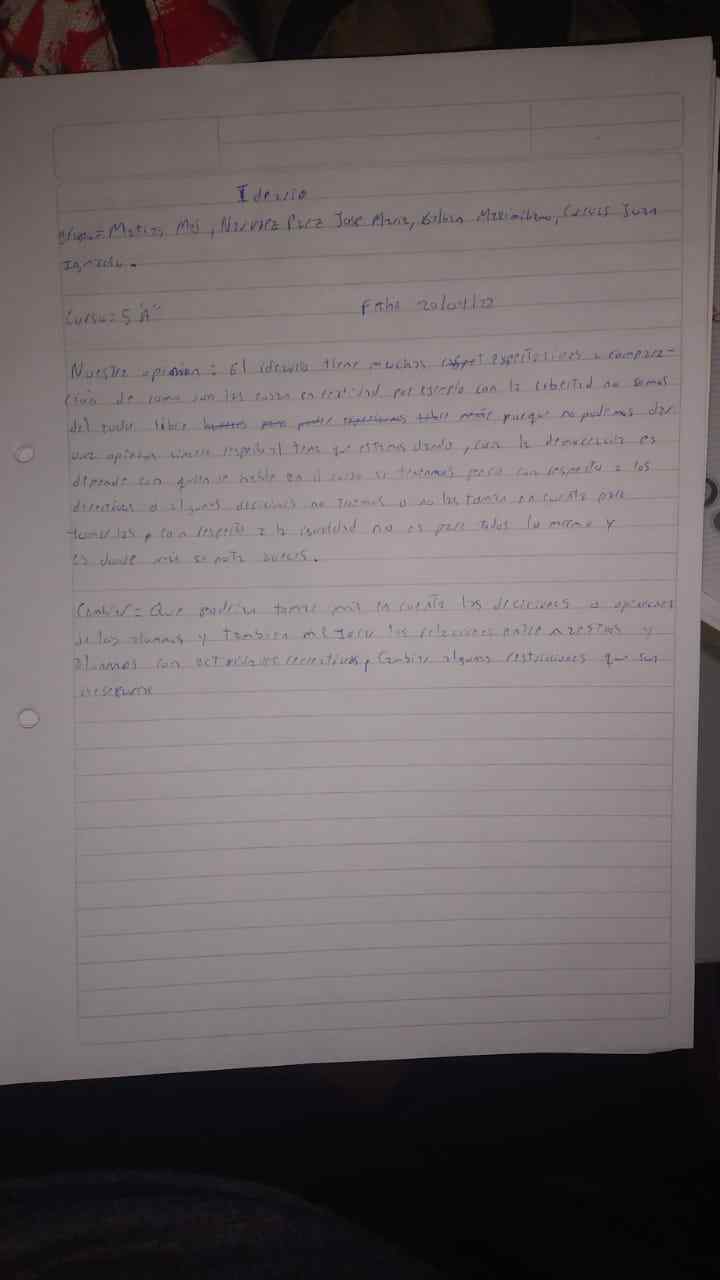 Ideario
Grupo= Matias Moj, Narvaez Paez Jose Maria, Maximiliano, Juan
Ignacio.
Curso= 5 "A" 20/04/22
Nuestra opinion: El ideario tiene muchas espectativas a compara-
ción de como son las cosas en realidad, por ejemplo con la libertad no somos
del todo libre porque no podemos dar
una opinion sincera respecto al tema que estamos dando, con la democracia es
depende con quien se hable en el curso si tenemos pero con respecto a los
directivos o algunas deciciones no tenemos o no las toman en cuenta para
tomarlas, con respecto a la igualdad no es para todos lo mismo y
es donde más se nota aveces.
Cambiar= Que podrian tomar más en cuenta las deciciones o opiniones
de los alumnos y tambien mejorar las relaciones entre maestros y
alumnos con actividades recreativas, Cambiar algunas restricciones que son